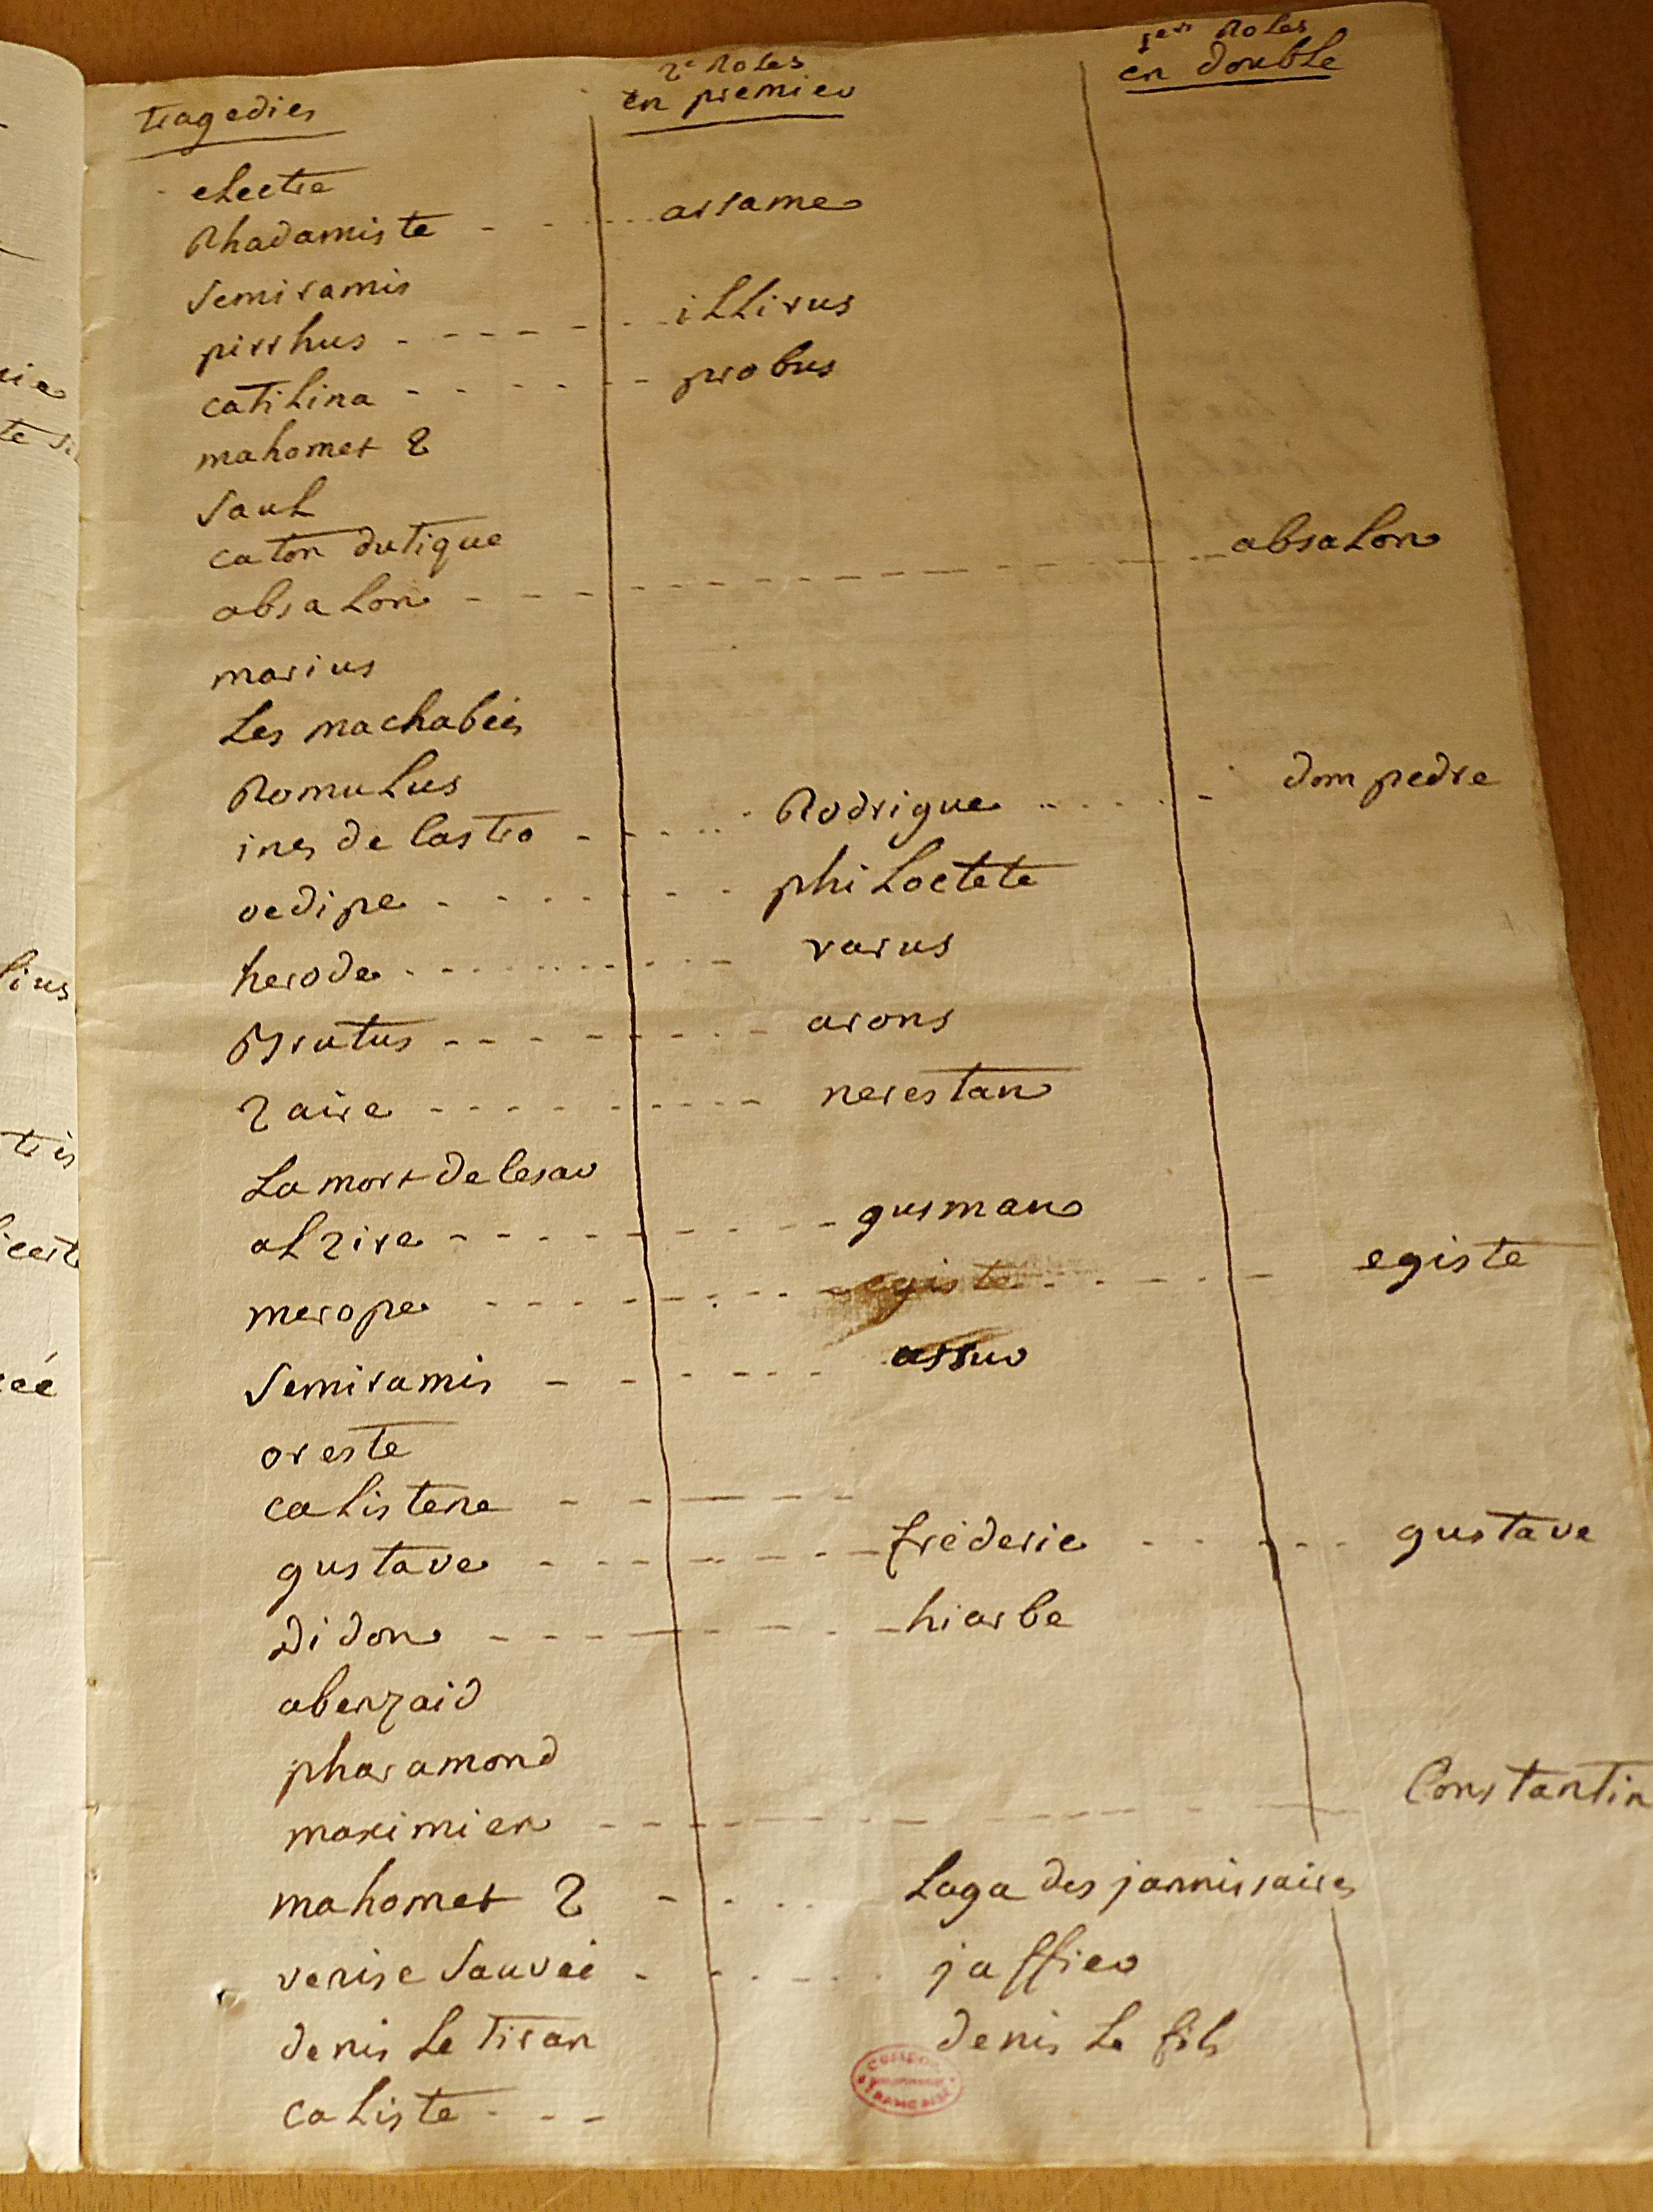 tragedies
2e Roles
en premier
1ers Roles
en double
electre
Rhadamiste - - - arsame
Semiramis
pirrhus - - - - - - illirus
catilina - - - - - - probus
mahomet 2
Saul
caton dutique
absalon - - - - - - absalon
marius
Les machabées
Romulus
ines de Castro - - - - - Rodrigue - - - - - dom pedre
oedipe - - - - - - philoctete
herode - - - - - - varus
Brutus - - - - - - arons
Zaire - - - - - - nerestan
La mort de Cesar
alzire - - - - - - gusman
merope - - - - - - egiste - - - - - egiste
Semiramis - - - - - - assur
oreste
calistene - - - - -
gustave - - - - - - fréderic - - - - - gustave
Didon - - - - - - hiarbe
abenzaid
pharamond
maximien - - - - - - Constantin
mahomet 2 - - - - Laga des jannissaires
venise Sauvée - - - - - jaffier
denis Le Tiran denis Le fils
caliste - - -
ie
te
lius
tis
cert
ée